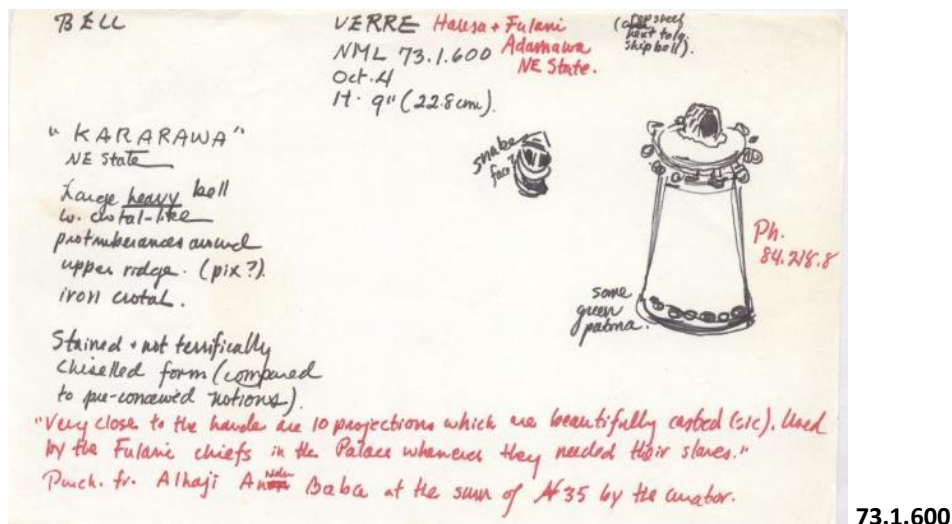 BELL
VERRE Hausa + Fulani
NML 73.1.600 Adamawa
NE State.
Oct. 4
H. 9" (22.8cm).
(
next to lg.
ship bell).
"KARARAWA"
NE State
Large heavy bell
w. crotal-like
protruberances around
upper ridge. (pix?).
iron crotal.
snake
face?
Ph.
84.218.8
some
green
patina.
Stained + not terrifically
chiselled form (compared
to pre-conceived notions).
"Very close to the handle are 10 projections which are beautifully casted (sic). Used
by the Fulani chiefs in the Palace whenever they needed their slaves."
Purch. fr. Alhaji Baba at the sum of ₦35 by the curator.
73.1.600